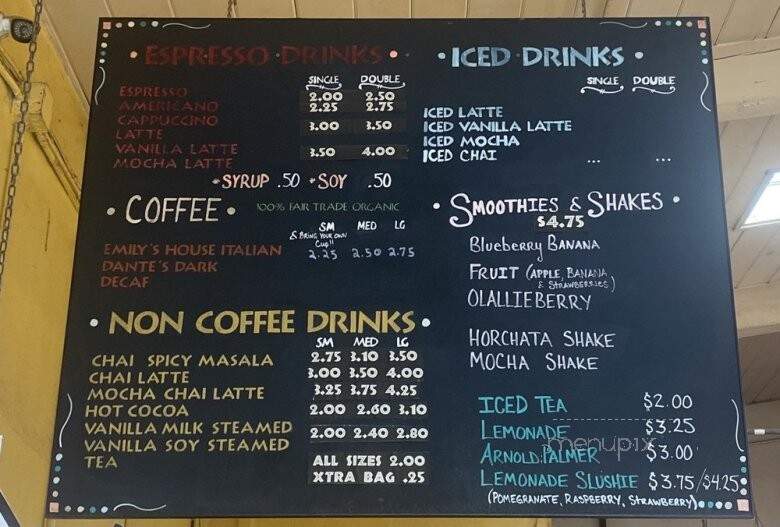 • ESPRESSO • DRINKS •
SINGLE DOUBLE
ESPRESSO 2.00 2.50
AMERICANO 2.25 2.75
CAPPUCCINO
LATTE 3.00 3.50
VANILLA LATTE
MOCHA LATTE 3.50 4.00
• SYRUP .50 • SOY .50
• COFFEE • 100% FAIR TRADE ORGANIC
SM MED LG
& BRING YOUR OWN
CUP!!
EMILY'S HOUSE ITALIAN 2.25 2.50 2.75
DANTE'S DARK
DECAF
• NON COFFEE DRINKS •
SM MED LG
CHAI SPICY MASALA 2.75 3.10 3.50
CHAI LATTE 3.00 3.50 4.00
MOCHA CHAI LATTE 3.25 3.75 4.25
HOT COCOA 2.00 2.60 3.10
VANILLA MILK STEAMED
VANILLA SOY STEAMED 2.00 2.40 2.80
TEA ALL SIZES 2.00
XTRA BAG .25
• ICED • DRINKS •
SINGLE DOUBLE
ICED LATTE
ICED VANILLA LATTE
ICED MOCHA
ICED CHAI ... ...
• SMOOTHIES & SHAKES •
$4.75
BLUEBERRY BANANA
FRUIT (APPLE, BANANA
& STRAWBERRIES)
OLALLIEBERRY
HORCHATA SHAKE
MOCHA SHAKE
ICED TEA $2.00
LEMONADE $3.25
menupix
ARNOLD PALMER $3.00
LEMONADE SLUSHIE $3.75/$4.25
(POMEGRANATE, RASPBERRY, STRAWBERRY)